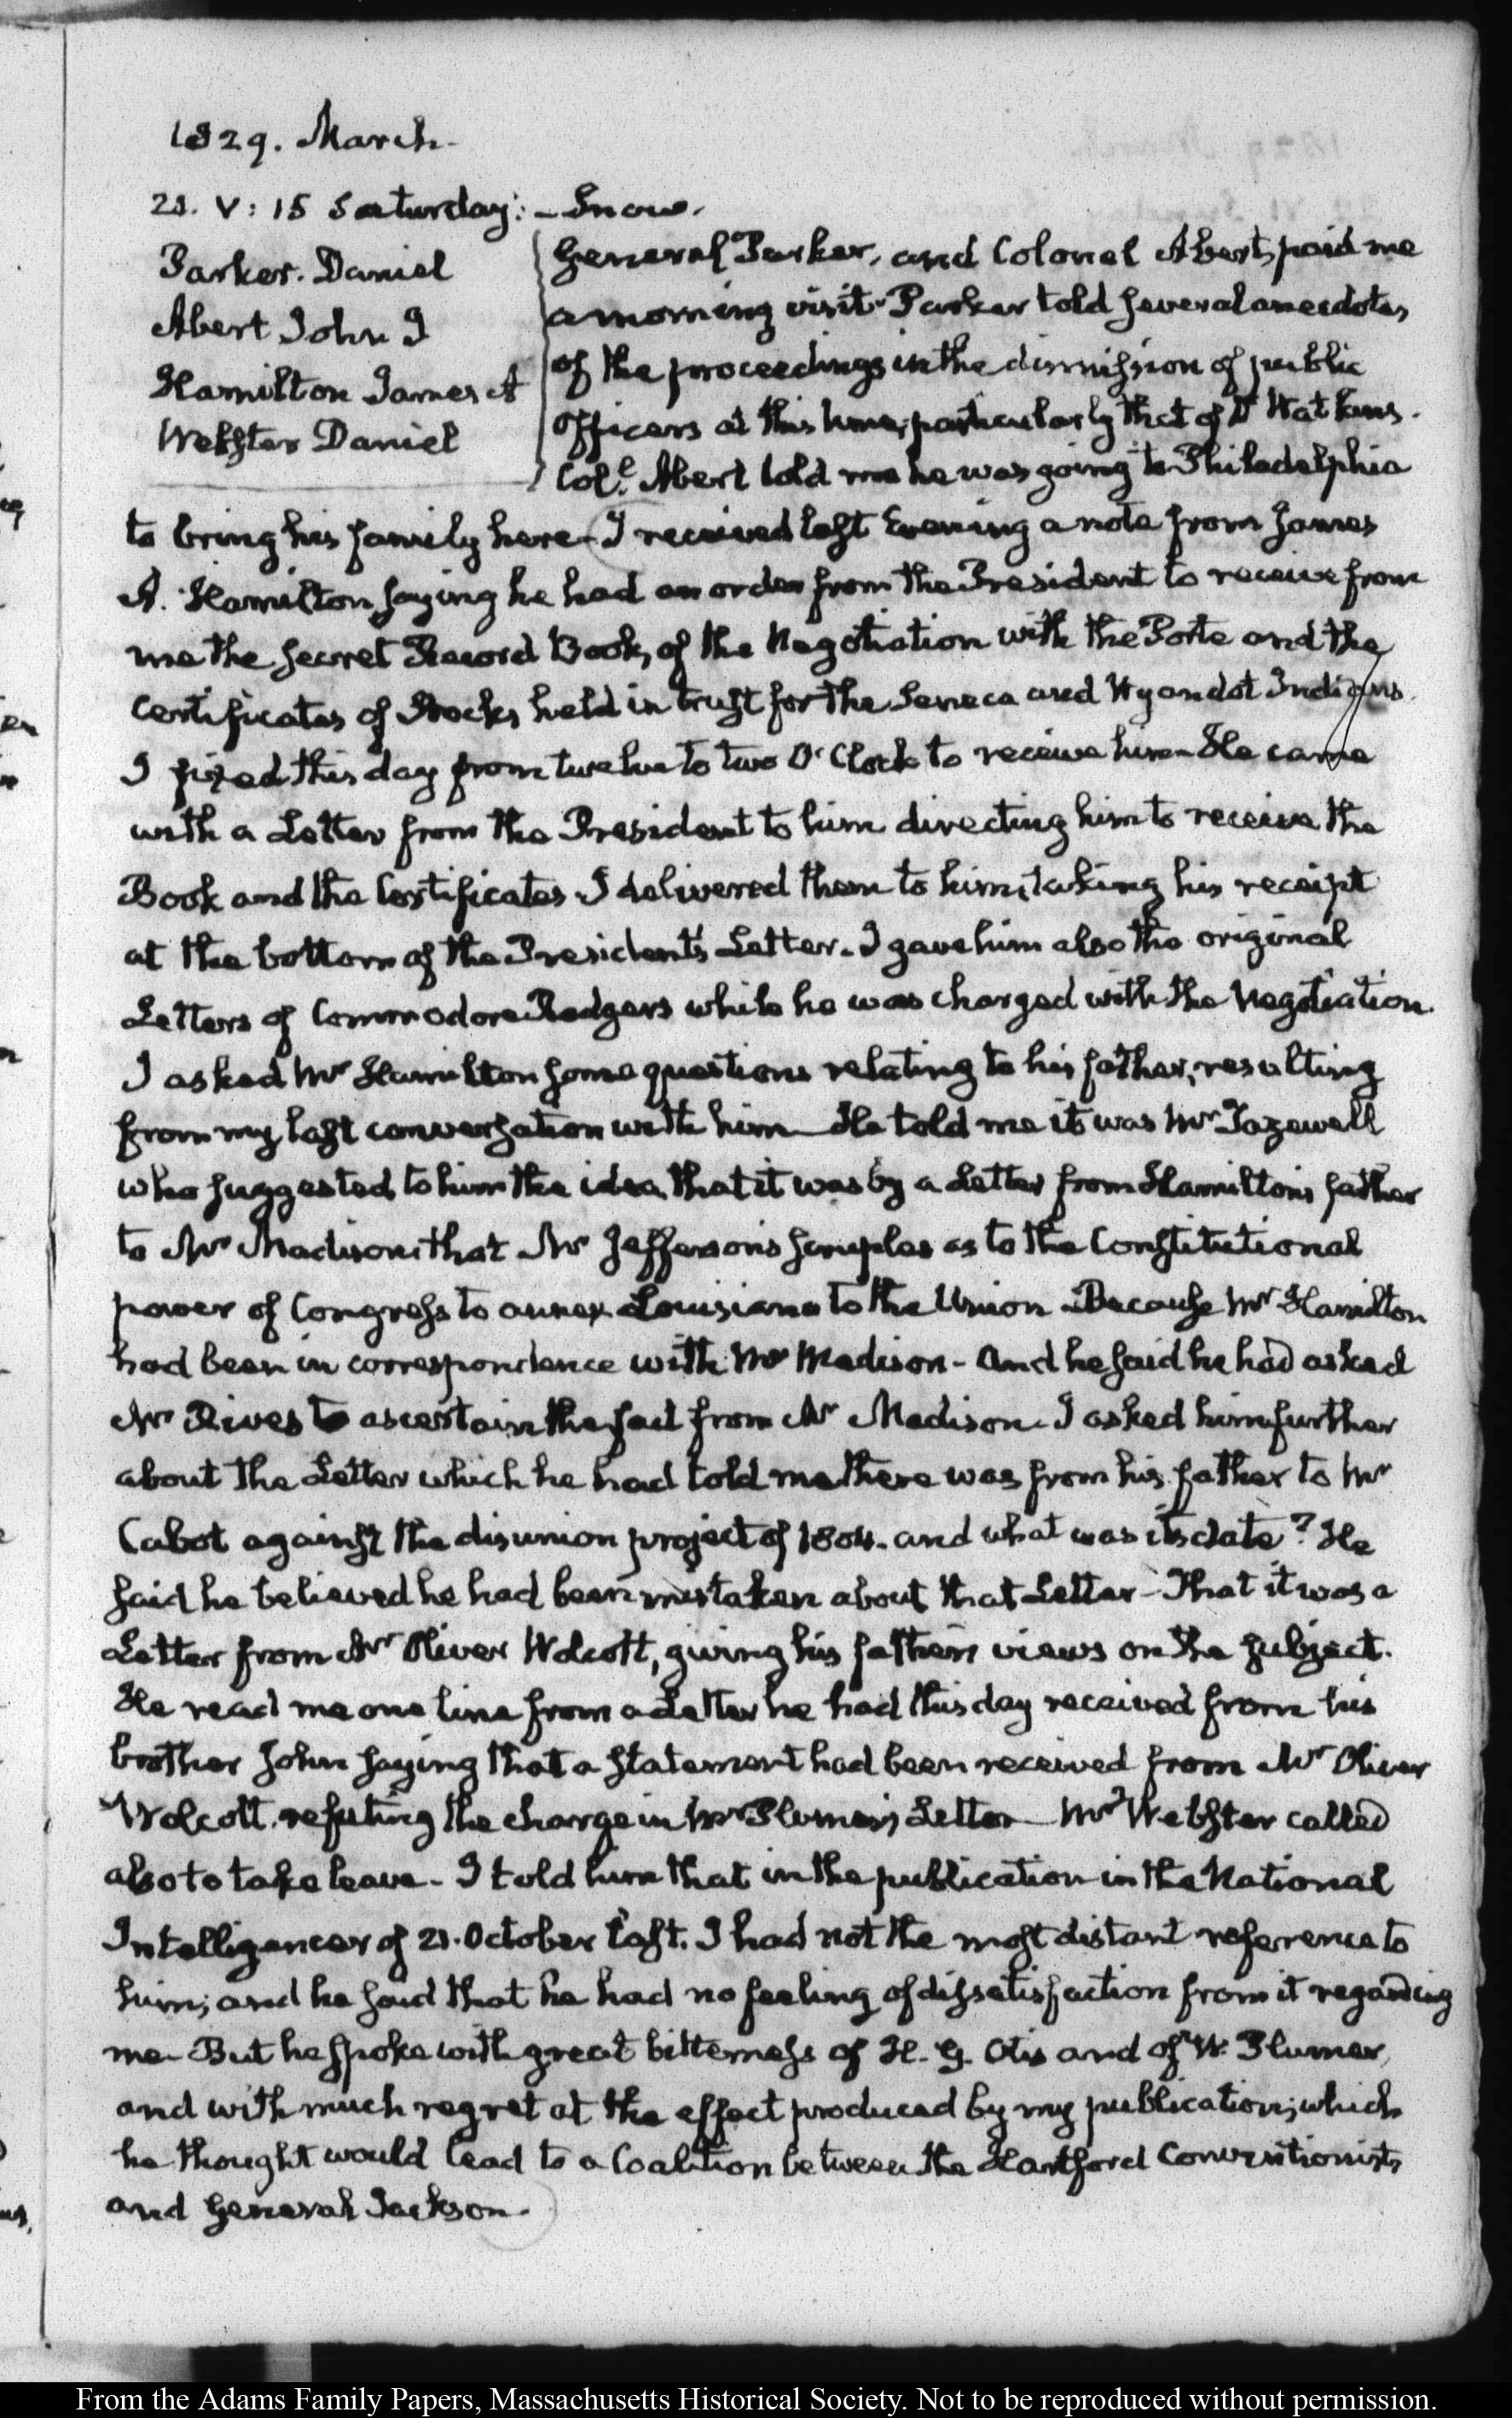 1829. March.
21. V: 15 Saturday: - Snow.
Parker. Daniel
Abert John J
Hamilton James A
Webster Daniel
General Parker, and Colonel Abert, paid me
a morning visit. Parker told several anecdotes
of the proceedings in the dismission of public
Officers at this time, particularly that of Dr Watkins.
Coll. Abert told me he was going to Philadelphia
to bring his family here - I received last Evening a note from James
A. Hamilton saying he had an order from the President to receive from
me the secret Record Book, of the Negotiation with the Porte and the
Certificates of Stocks, held in trust for the Seneca and Wyandot Indians.
I fixed this day from twelve to two O'Clock to receive him - He came
with a Letter from the President to him directing him to receive the
Book and the Certificates. I delivered them to him, taking his receipt
at the bottom of the President's Letter. I gave him also the original
Letters of Commodore Rodgers while he was charged with the Negotiation.
I asked Mr Hamilton some questions relating to his father, resulting
from my last conversation with him - He told me it was Mr Tazewell
who suggested to him the idea, that it was by a Letter from Hamilton's father
to Mr Madison, that Mr Jefferson's scruples as to the Constitutional
power of Congress to annex Louisiana to the Union - Because Mr Hamilton
had been in correspondence with Mr Madison - And he said he had asked
Mr Rives to ascertain the fact from Mr Madison. I asked him further
about the Letter which he had told me there was from his father to Mr
Cabot against the disunion project of 1804. and what was its date? He
said he believed he had been mistaken about that Letter - That it was a
Letter from Mr Oliver Wolcott, giving his father's views on the subject.
He read me one line from a Letter he had this day received from his
brother John saying that a statement had been received from Mr Oliver
Wolcott, refuting the charge in Mr Plumer's Letter - Mr Webster called
also to take leave - I told him that in the publication in the National
Intelligencer of 21. October last. I had not the most distant reference to
him; and he said that he had no feeling of dissatisfaction from it regarding
me - But he spoke with great bitterness of H. G. Otis and of W. Plumer,
and with much regret at the effect produced by my publication; which
he thought would lead to a Coalition between the Hartford Conventionists,
and General Jackson.
From the Adams Family Papers, Massachusetts Historical Society. Not to be reproduced without permission.